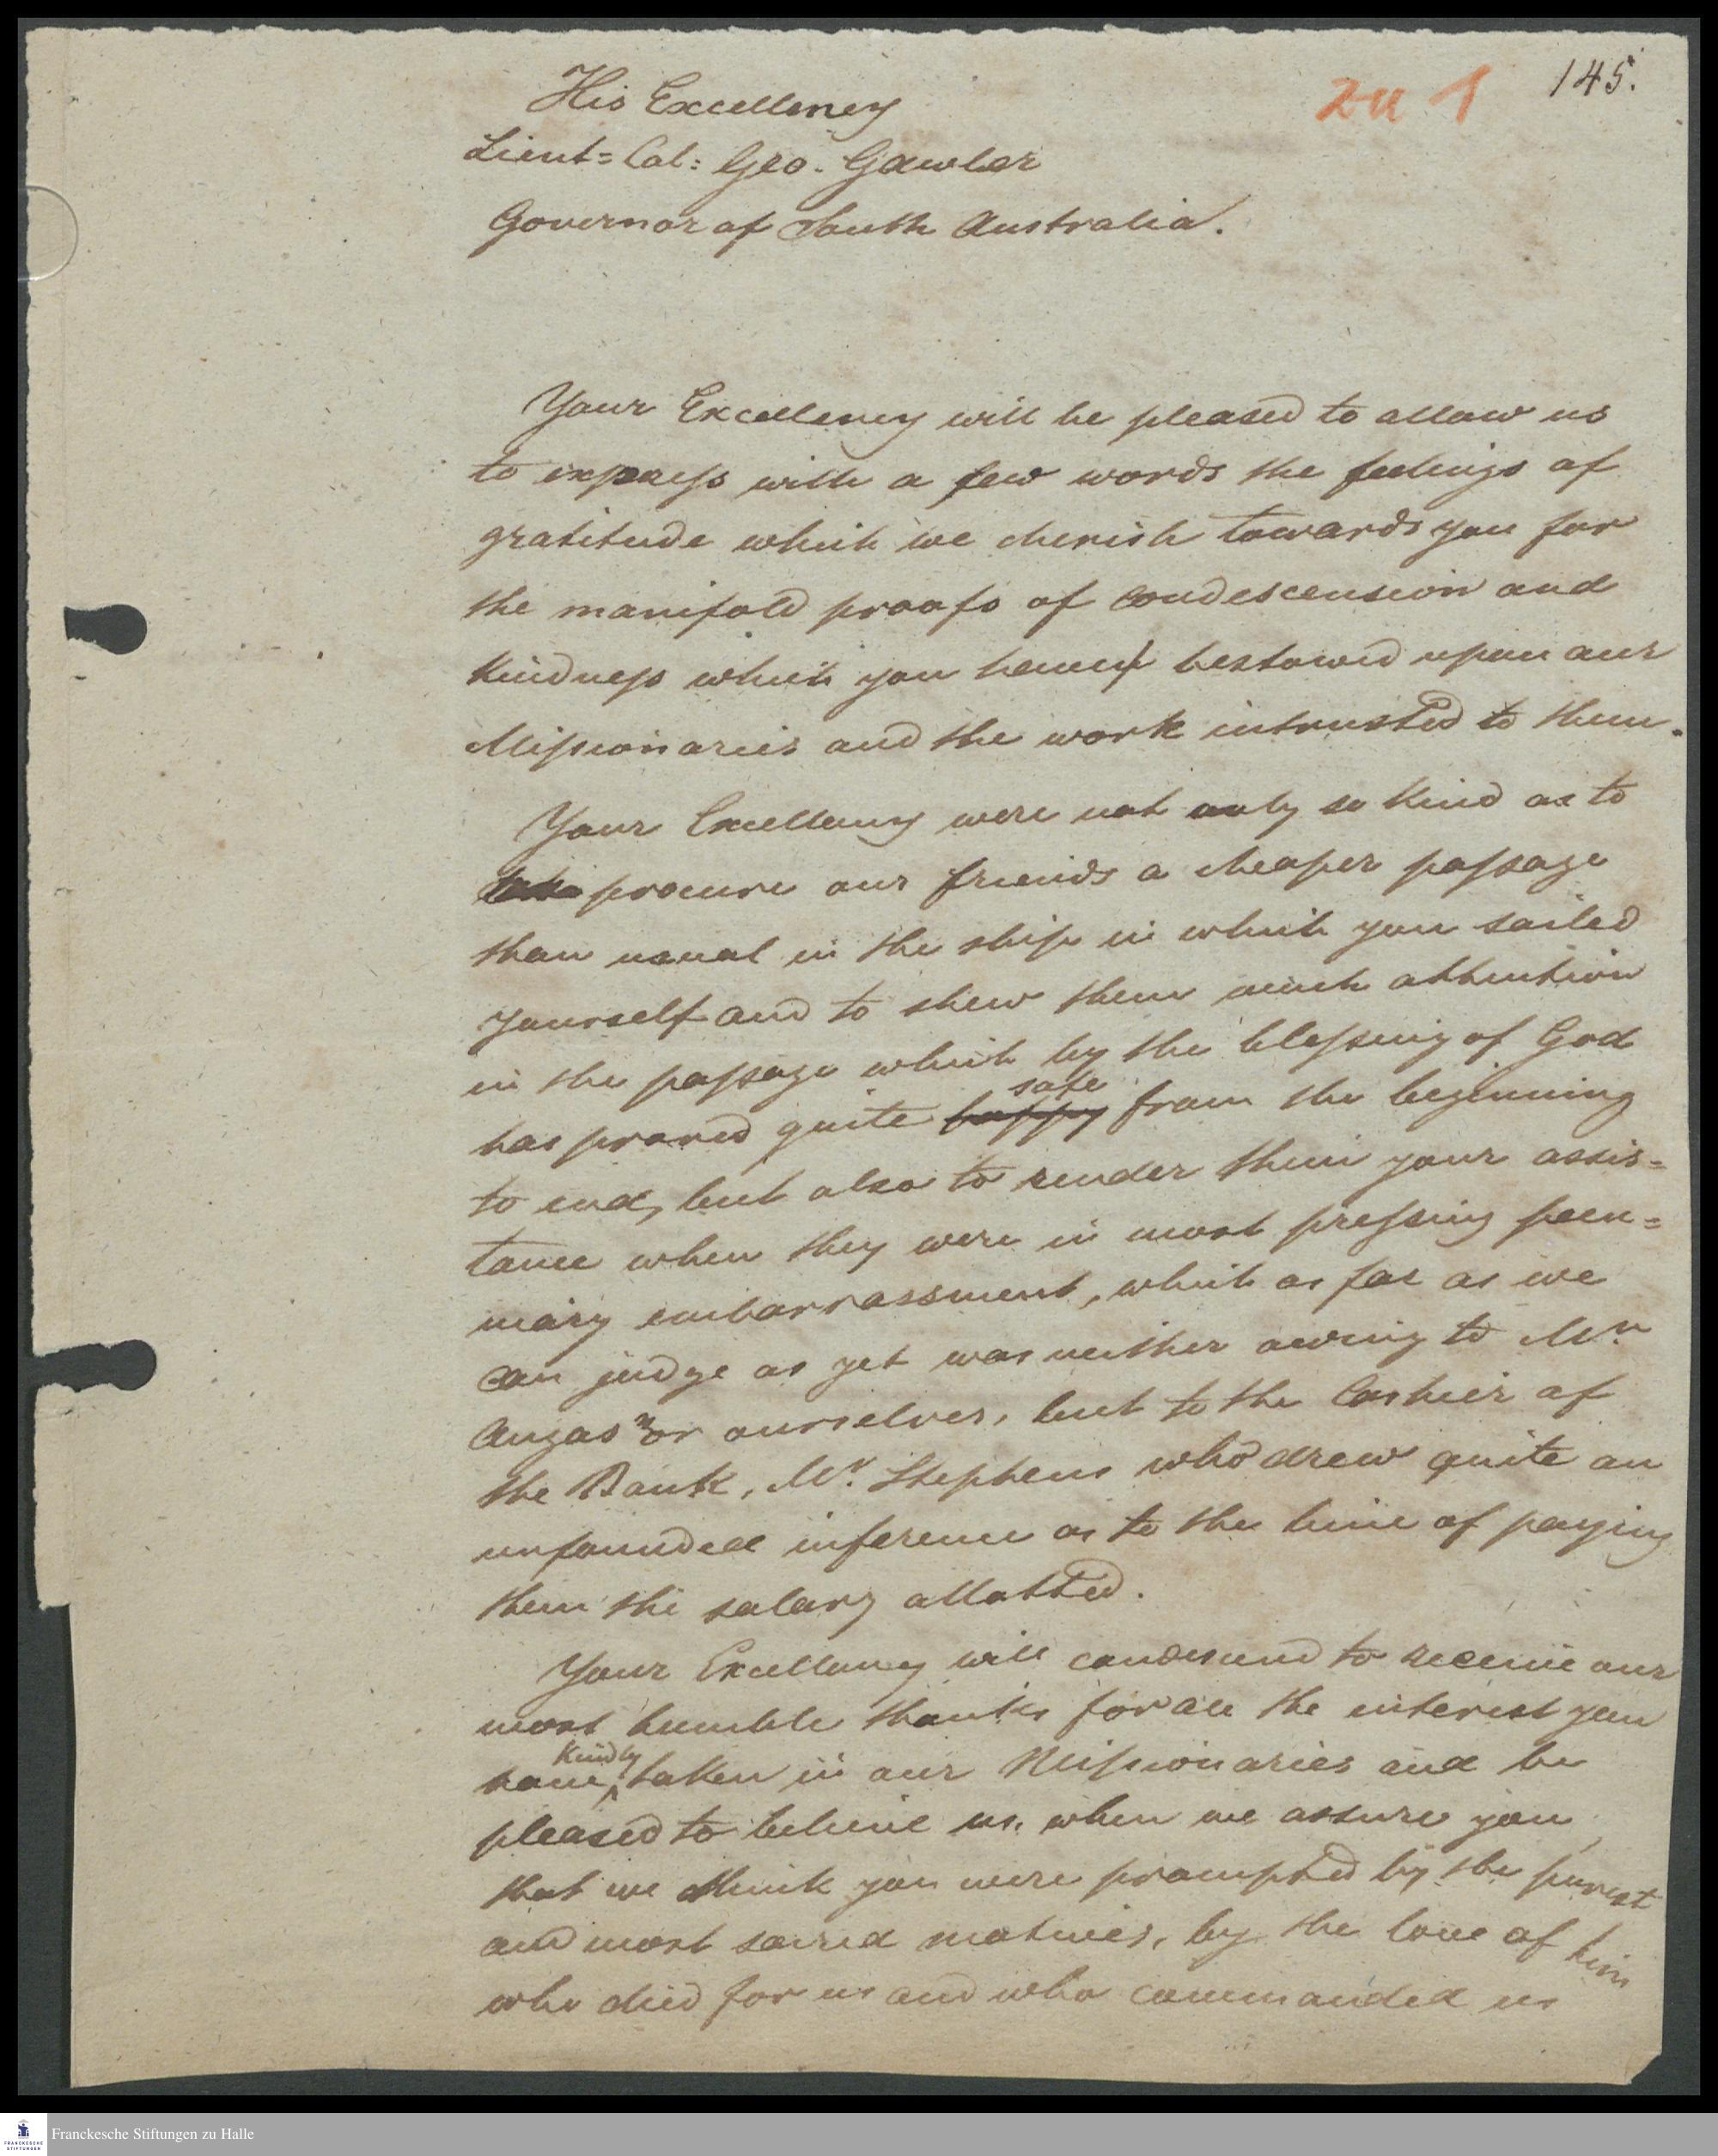 145.
zu 1
His Excellency
Lieut= Col: Geo. Gawler
Governor of South Australia.
Your Excellency will be pleased to allow us
to express with a few words the feelings of
gratitude which we cherish towards you for
the manifold proofs of condescension and
kindness which you have bestowed upon our
Missionaries and the work intrusted to them.
Your Excellency were not only so kind as to
procure our friends a cheaper passage
than usual in the ship in which you sailed
yourself and to shew them much attention
in the passage which by the blessing of God
has proved quite happy safe from the beginning
to end, but also to render them your assis=
tance when they were in most pressing pecu=
niary embarrassment, which as far as we
can judge as yet was neither owing to Mr.
Angas nor ourselves, but to the Cashier of
the Bank, Mr. Stephens who drew quite an
unfounded inference as to the time of paying
them the salary allotted.
Your Excellency will condescend to receive our
most humble thanks for all the interest you
have kindly taken in our Missionaries and be
pleased to believe us, when we assure you,
that we think you were prompted by the purest
and most sacred motives, by the love of him
who died for us and who commanded us
Franckesche Stiftungen zu Halle
FRANCKESCHE
STIFTUNGEN